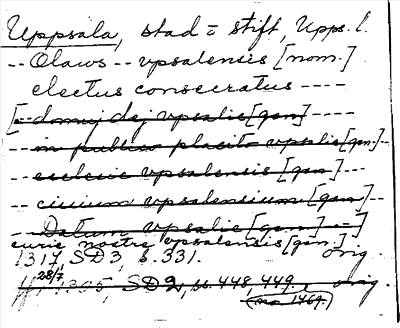 Uppsala, stad o stift, Upps. l.
-- Olaws -- vpsalensis [nom.]
electus consecratus ----
[-- domuj dej vpsalie [gen] ----
-- in publico placito vpsalie [gen.] --
-- ecclesie vpsalensis [gen.] ---
-- ciuium vpsalensium [gen] --
-- Datum vpsalie [gen.] --]
curie nostre vpsalensis [gen.]
1317, SD3, s. 331. orig.
28/7 1305, SD2, s. 448, 449. orig.
(no 1464.)